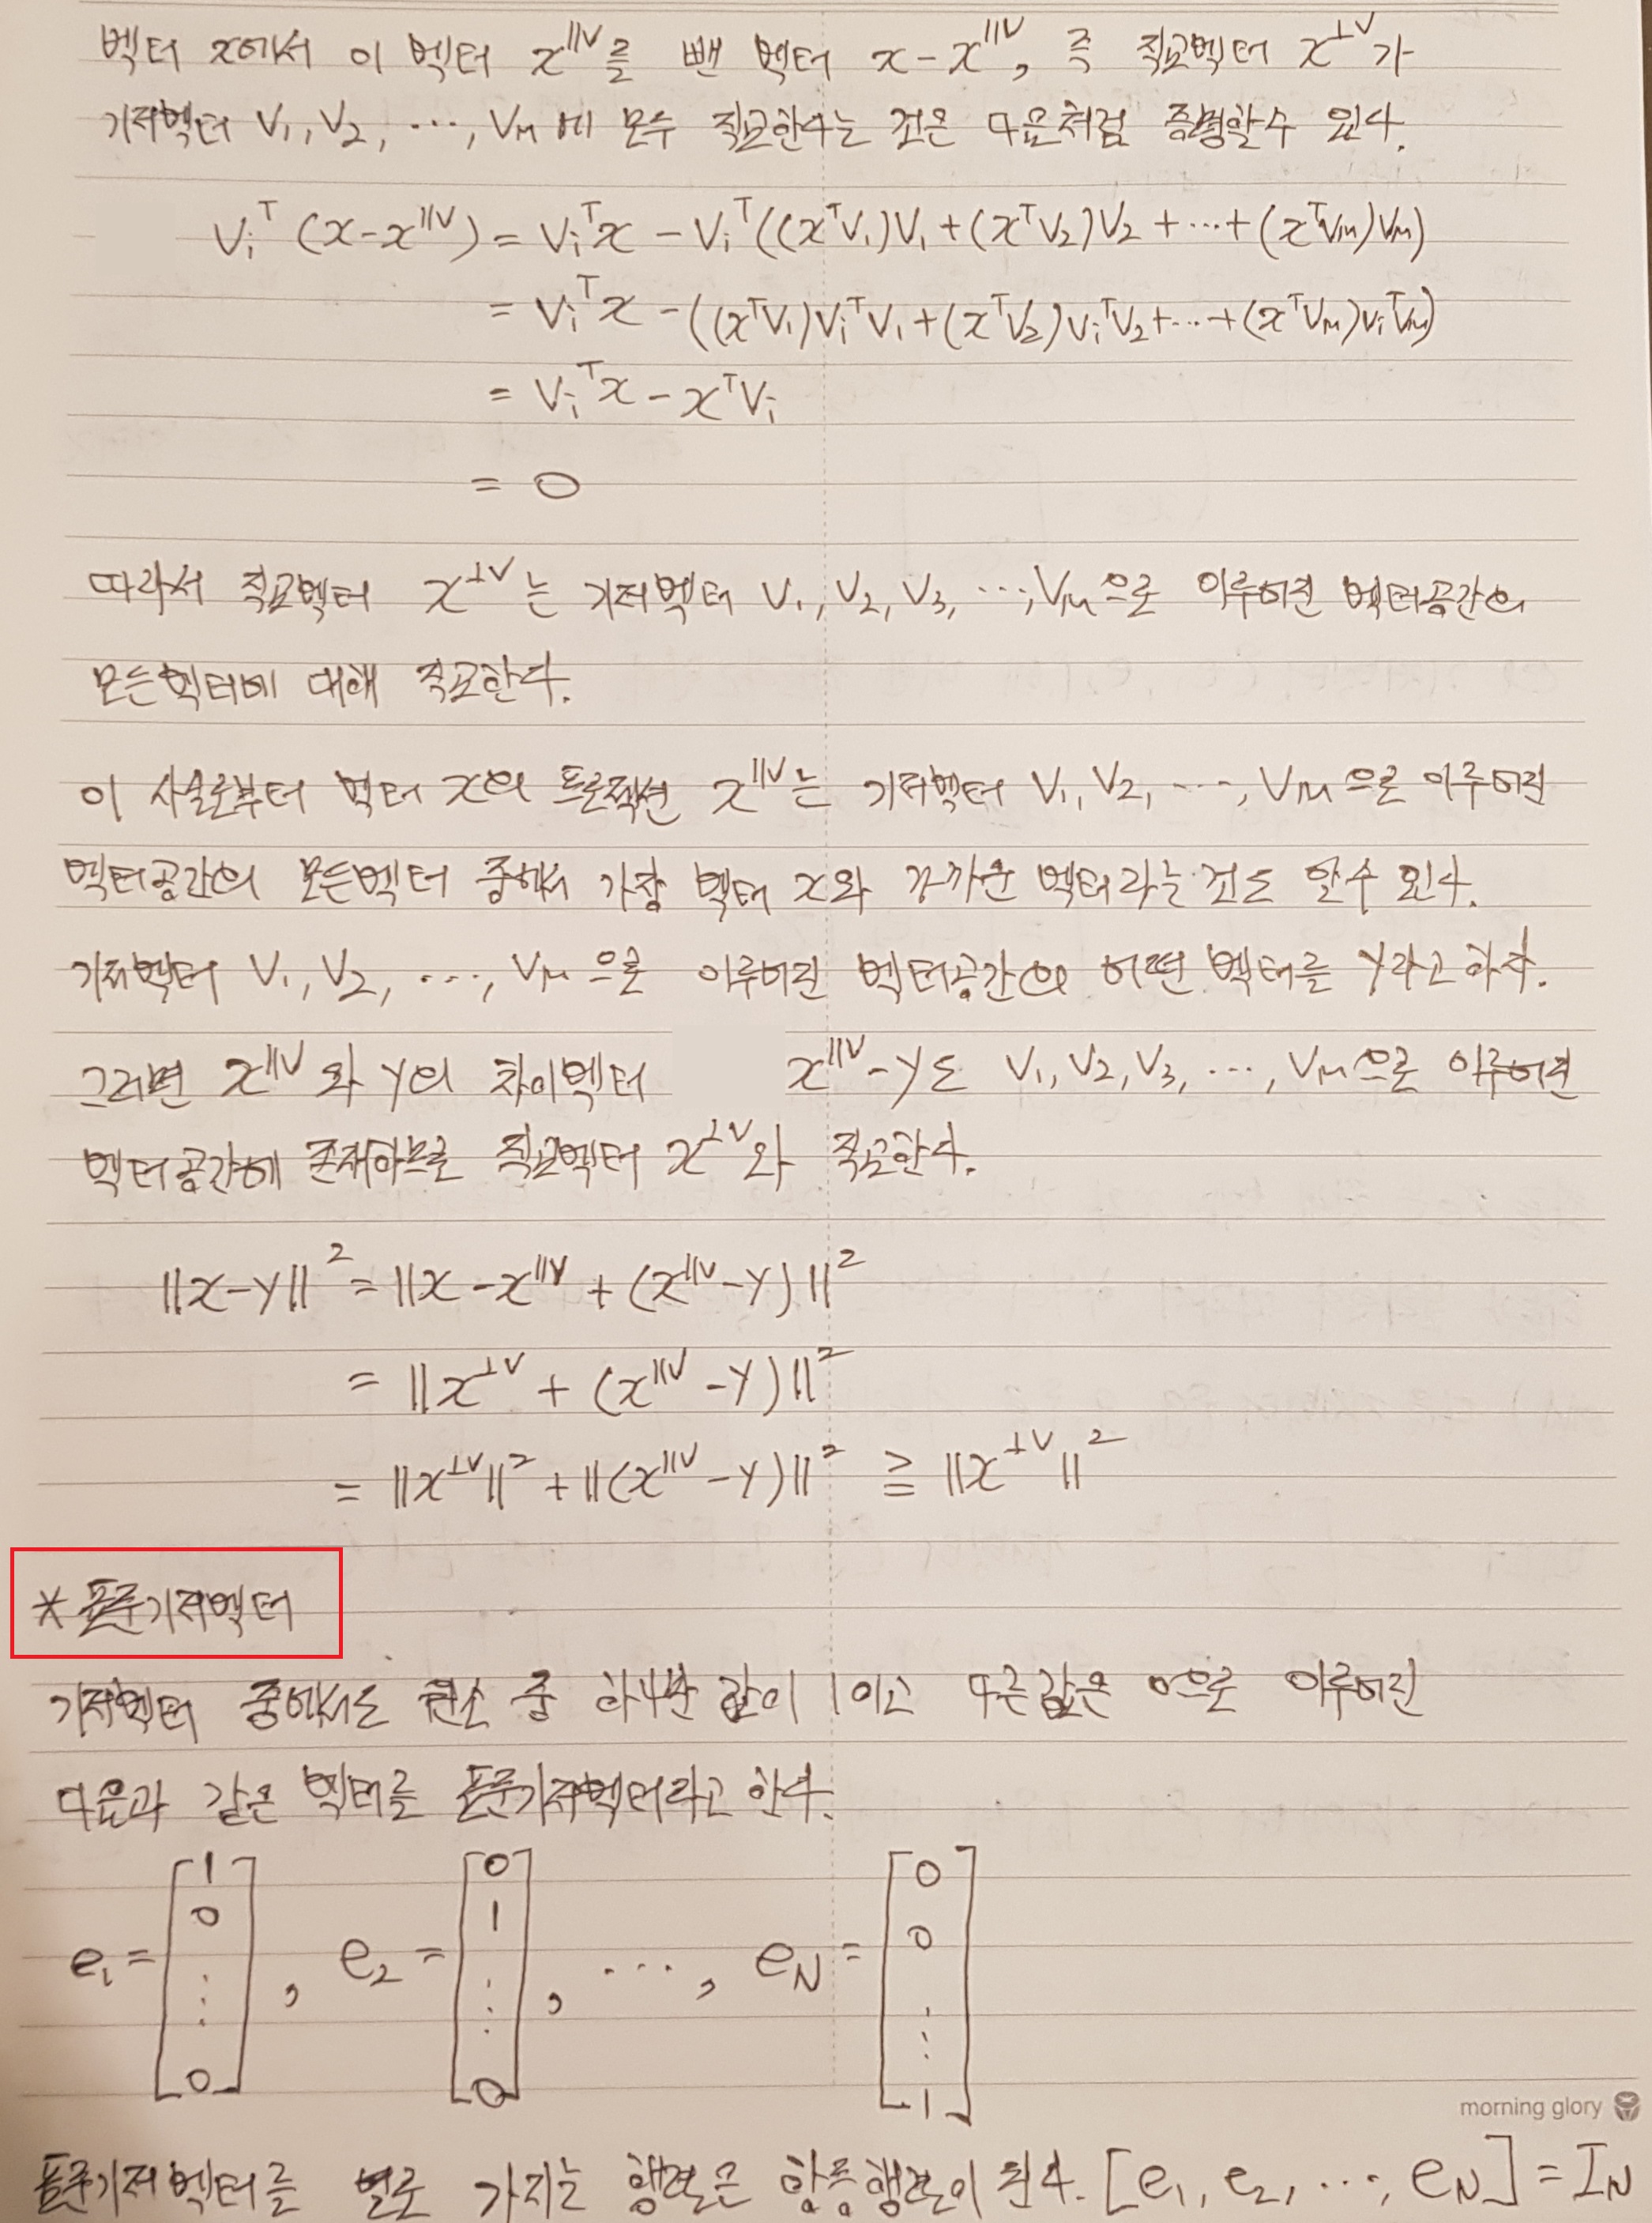 벡터 x에서 이 벡터 x^∥V를 뺀 벡터 x-x^∥V, 즉 직교벡터 x^⊥V가
기저벡터 V₁, V₂, ⋯, V_M에 모두 직교한다는 것은 다음처럼 증명할수 있다.
Vᵢᵀ (x-x^∥V) = Vᵢᵀx - Vᵢᵀ((xᵀV₁)V₁ + (xᵀV₂)V₂ + ⋯ + (xᵀV_M)V_M)
= Vᵢᵀx - ((xᵀV₁)VᵢᵀV₁ + (xᵀV₂)VᵢᵀV₂ + ⋯ + (xᵀV_M)VᵢᵀV_M)
= Vᵢᵀx - xᵀVᵢ
= 0
따라서 직교벡터 x^⊥V는 기저벡터 V₁, V₂, V₃, ⋯, V_M으로 이루어진 벡터공간의
모든벡터에 대해 직교한다.
이 사실로부터 벡터 x의 프로젝션 x^∥V는 기저벡터 V₁, V₂, ⋯, V_M으로 이루어진
벡터공간의 모든벡터 중에서 가장 벡터 x와 가까운 벡터라는 것도 알수 있다.
기저벡터 V₁, V₂, ⋯, V_M으로 이루어진 벡터공간의 어떤 벡터를 y라고 하자.
그러면 x^∥V와 y의 차이벡터 x^∥V-y도 V₁, V₂, V₃, ⋯, V_M으로 이루어진
벡터공간에 존재하므로 직교벡터 x^⊥V와 직교한다.
||x-y||² = ||x-x^∥V + (x^∥V-y)||²
= ||x^⊥V + (x^∥V-y)||²
= ||x^⊥V||² + ||(x^∥V-y)||² ≧ ||x^⊥V||²
* 표준기저벡터
기저벡터 중에서도 원소 중 하나만 값이 1이고 다른값은 0으로 이루어진
다음과 같은 벡터를 표준기저벡터라고 한다.
e₁ = [1 0 ⋮ 0], e₂ = [0 1 ⋮ 0], ⋯, e_N = [0 0 ⋮ 1]
morning glory
표준기저벡터를 열로 가지는 행렬은 항등행렬이 된다. [e₁, e₂, ⋯, e_N] = I_N